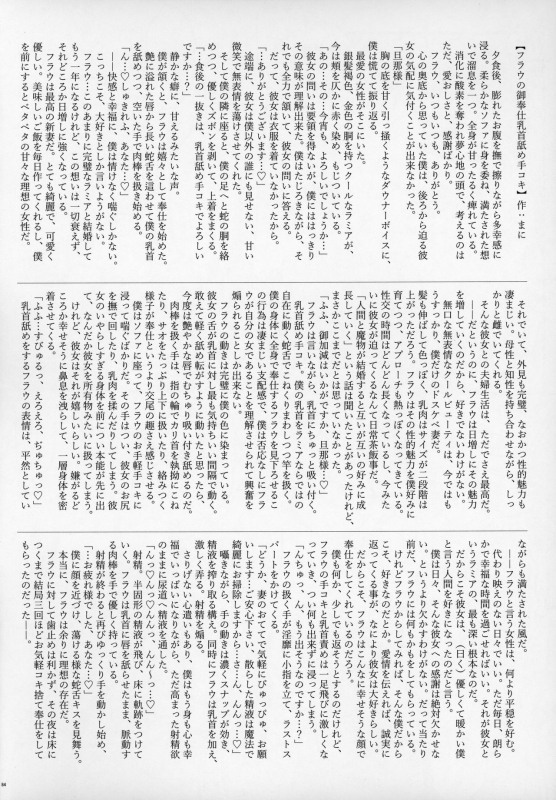 【フラウの御奉仕乳首舐め手コキ】作：まに
夕食後、膨れたお腹を撫で擦りながら多幸感に
浸る。柔らかなソファに身を委ね、満たされた想
いで溜息を一つ。全身が甘ったるく痺れている。
消化に酸素を奪われ夢心地の頭で、考えるのは
ただ、愛おしさと、感謝ばかり。
フラウ、いつもいつも、ありがとう。
心の奥底から思っていた僕は、後ろから迫る彼
女の気配に気付くことが出来なかった。
「旦那様」
胸の底を甘く引っ掻くようなダウナーボイスに、
僕は慌てて振り返る。
最愛の女性がそこにいた。
銀髪褐色、金色の胴を持つクールなラミアが、
今は頬を仄かに赤く染め、
「あの…今宵も、よろしいでしょうか…」
彼女の問いは要領を得ないが、僕にははっきり
その意味が理解出来た。僕はたじろぎながら、そ
れでも全力で頷いて、彼女の問いに答える。
だって、彼女は衣服を着ていなかったから。
「…ありがとうございます…♡」
途端に、彼女は僕以外の誰にも見せない、甘い
微笑で無表情を蕩けさせてくれた。
そして僕の隣に座ると、僕の足へと蛇の胴を絡
めつつ、優しくズボンを剥いで、上着をまくる。
「…食後の一抜きは、乳首舐め手コキでよろしい
ですか…？」
静かな癖に、甘えるみたいな声。
僕が頷くと、フラウは嬉々として奉仕を始めた。
艶に溢れた唇から長い蛇舌を這わせて僕の乳首
を舐めつつ、空いた手で肉棒を扱き始める。
「ん…♡しゅきれふ、あなた…♡」
――快感と幸福に、僕は情けなく喘ぐしかない。
こっちこそ、大好きとしか言いようがない。
フラウ…このあまりに完璧なラミアと結婚して
もう一年になるけれど、この想いは一切衰えず、
それどころか日増しに強くなっている。
フラウは最高の新妻だ。とても綺麗で、可愛く
優しい。美味しいご飯を毎日作ってくれるし、僕
を前にするとベタベタの甘々な理想の女性だ。
それでいて、外見も完璧、なおかつ性的魅力も
凄まじい。母性と知性を持ち合わせながら、しっ
かりと雌でいてくれる。
そんな彼女との夫婦生活は、ただでさえ最高だ。
――だというのに、フラウは日増しにその魅力
を増していくのだから、好きでいる他ない。
無口な無表情クールだったはずなのに、今ではも
うすっかり、僕にだけのドスケベ妻だ。
髪も伸ばして色っぽく、乳肉はサイズが二段階は
上がっただろう。フラウはその性的魅力を僕好みに
育てつつ、アプローチも熱っぽくなってきている。
性交の時間はどんどん長くなっているし、今みた
いに彼女が迫ってくるなんて日常茶飯事だ。
「人間と魔物が結婚すると互いが互いの好みに成
長していく」という話は聞いたことがあったけれど、
まさかここまでだなんて思いもしなかった。
「ふふ、御加減はいかがですか、旦那様…♡」
フラウは言いながら、乳首にちゅっと吸い付く。
自在に動く蛇舌でこねくりまわしつつ竿を扱く。
乳首舐め手コキ。僕の乳首をラミアならではの
僕の身体に全身で奉仕するフラウを見下ろすこ
の行為は凄まじい支配感で、僕は否応なしにフラ
ウが自分の女であることを理解させられて興奮を
煽られることしか出来なかった。
そしてフラウの動きは完璧に僕の色に染まってい
る。彼女の舌が乳首に対して最も気持ちいい間隔で動く。
敢えて軽く舐め転がすように動いたと思ったら、
今度は艶やかな唇でむちゅり吸い付き舐めるのだ。
肉棒を扱く手は、指の輪でカリ首を執拗にこね
たり、サオをたっぷり上下に扱いたり、絡みつく
様子が奉仕というより交尾の趣さえ感じさせる。
僕はソファに座って、フラウのお手軽手コキに
浸って喘ぐばかりだ。その手はつい、彼女のお尻
を撫で回したり、乳肉を揉んだりしてしまう。彼
女のいやらしすぎる身体を前につい本能が先に出
て、なんだか彼女を所有物みたいに扱ってしまう。
けれど、彼女はそれが嬉しいらしい。嫌がるど
ころか幸せそうに鼻息を洩らして、一層身体を密
着させてくる。
「ふふ…すぴゅるっ、えろえろ、ぢゅちゅっ♡」
乳首舐めをするフラウの表情は、平然としてい
ながらも満たされた風だ。
――フラウと言う女性は、何より平穏を好む。
代わり映えのない日々でいい。ただ毎日、朗ら
かで幸福な時間を過ごせればいい。それが彼女と
いうラミアの、最も深い根本なのだ。
だからこそ彼女は、（曰く）優しくて暖かい僕
と言う人間を好いてくれているらしい。
僕は日々、そんな彼女への感謝は絶対欠かせな
い。というより欠かすわけがない。だって当たり
前だ。フラウには何もかもをしてもらっている。
けれどフラウからしてみれば、そんな僕だから
こそ、好きなのだとか。愛情を伝えれば、誠実に
返ってくる事が、なにより彼女は大好きらしい。
だからこそ、フラウはこんなに幸せそうな顔で
奉仕をしてくれているのだろう。
僕も何か、しなければ、とするのだけれど、
フラウの手コキと乳首責めは一足飛びに激しくな
っていき、つい何も出来ずに浸ってしまう。
「んちゅっ、ん、もう出そうなのですか…？」
フラウの扱く手が淫靡に小指を立て、ラストス
パートをかけてくる。
「どうか、妻のおててで気軽にぴゅっぴゅ、お願
いします…ご安心下さい、散らした精液は魔法で
綺麗にお掃除しますから…♡ん、んんっ♡」
囁きながら、手の動きは凄くスナップが効き、
精液を搾り取る構え。同時にフラウは乳首を加え、
激しく弄る。射精を煽る。
さりげない心遣いもあり、僕はもう身も心も幸
福でいっぱいになりながら、ただ高まった射精欲
のままに尿道へ精液を通した。
「んっ♡んっ♡んんっ、んん～っ…♡」
射精。半固形の精液が飛び、床に軌跡をつけて
いく。フラウは乳首に唇を括らせたまま、脈動す
る肉棒を手で優しく持っている。
射精が終わると再びゆっくり手を動かし始め、
「…お疲れ様でした、あなた…♡」
僕に顔を近づけ、蕩ける様な蛇舌キスを見舞う。
本当に、フラウは余りに理想の存在だ。
フラウに対して歯止めは利かず、その夜は床に
つくまで結局三回ほどお気軽コキ捨て奉仕をして
もらったのだった――。